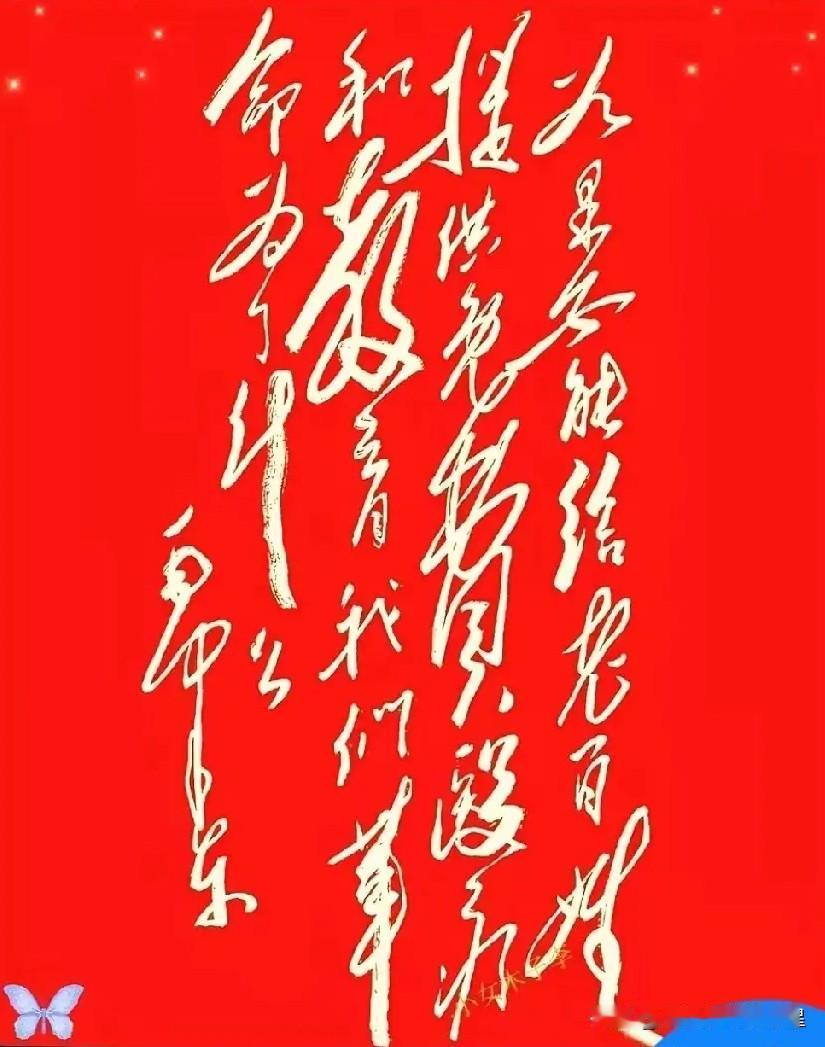 如果不能给老百姓
提供免费医疗
和教育我们革
命为了什么
毛泽东
小女木子李